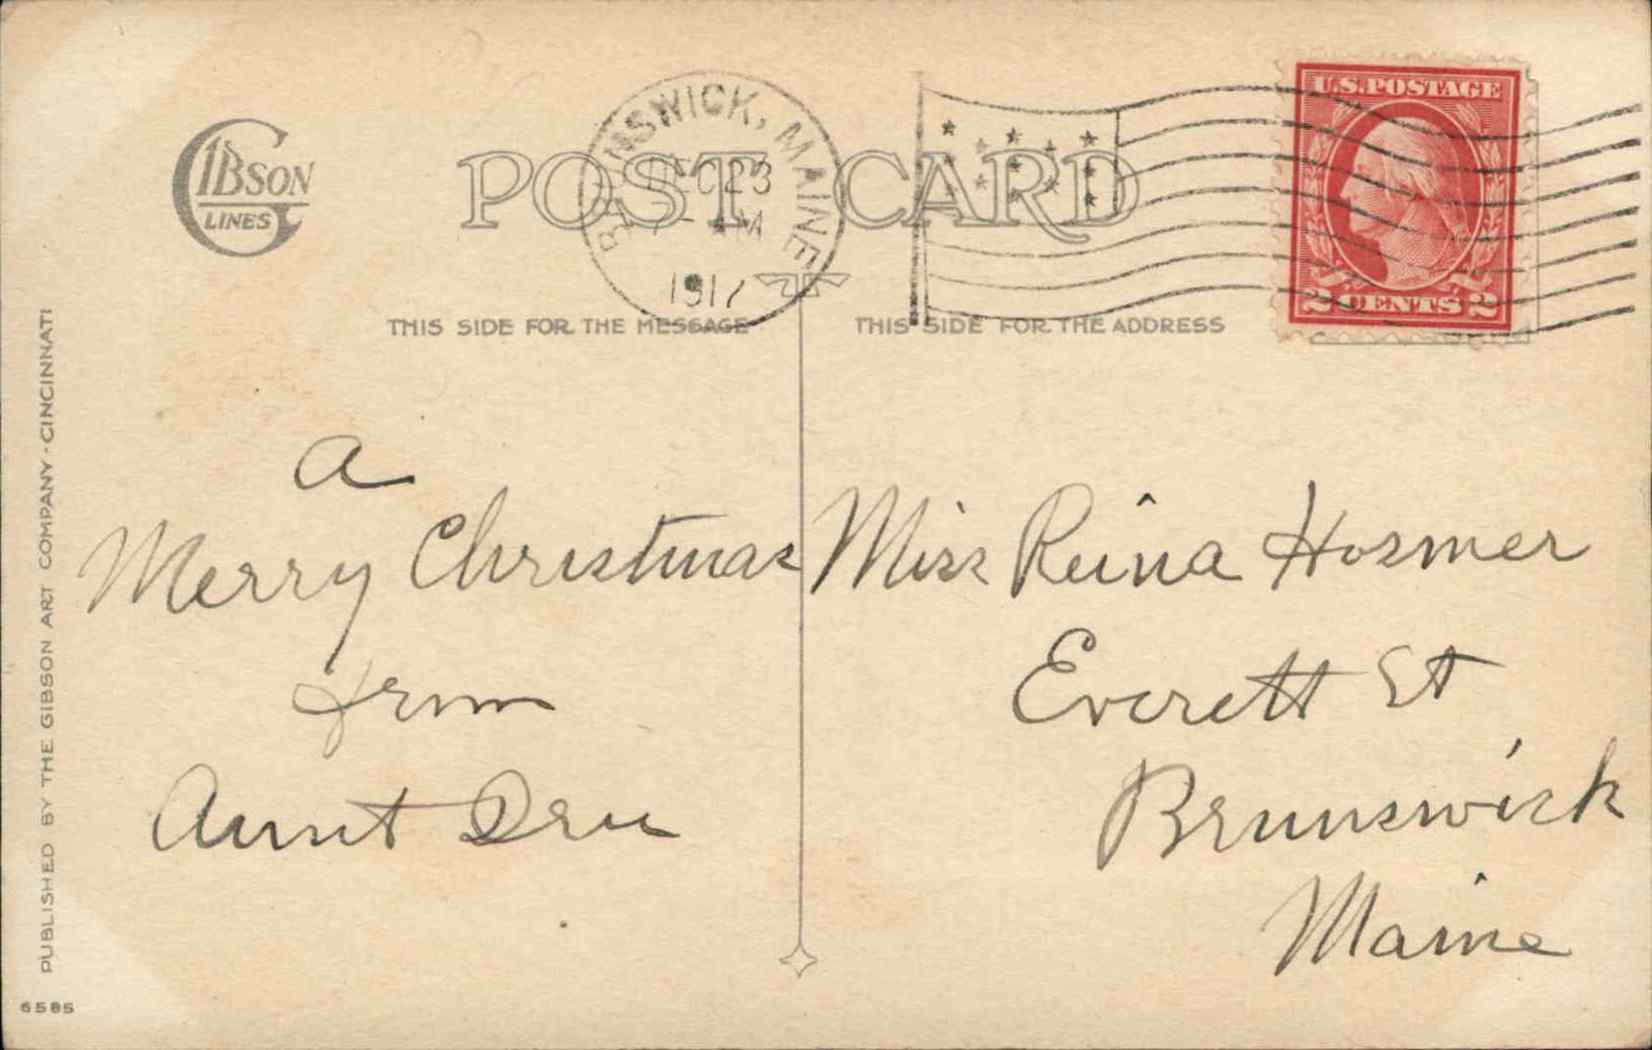 GIBSON
LINES
POST CARD
BRUNSWICK, MAINE
DEC 23
AM
1917
U.S. POSTAGE
2 CENTS 2
THIS SIDE FOR THE MESSAGE
THIS SIDE FOR THE ADDRESS
a
Merry Christmas
from
Aunt
Miss Reina Hosmer
Everett St
Brunswick
Maine
PUBLISHED BY THE GIBSON ART COMPANY · CINCINNATI
6585